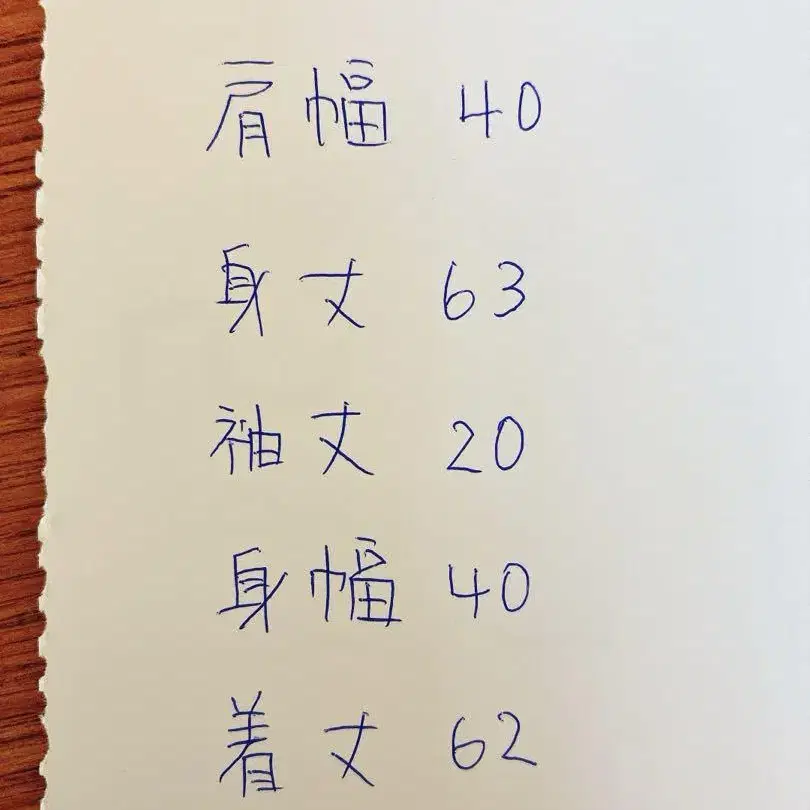 肩幅 40
身丈 63
袖丈 20
身幅 40
着丈 62